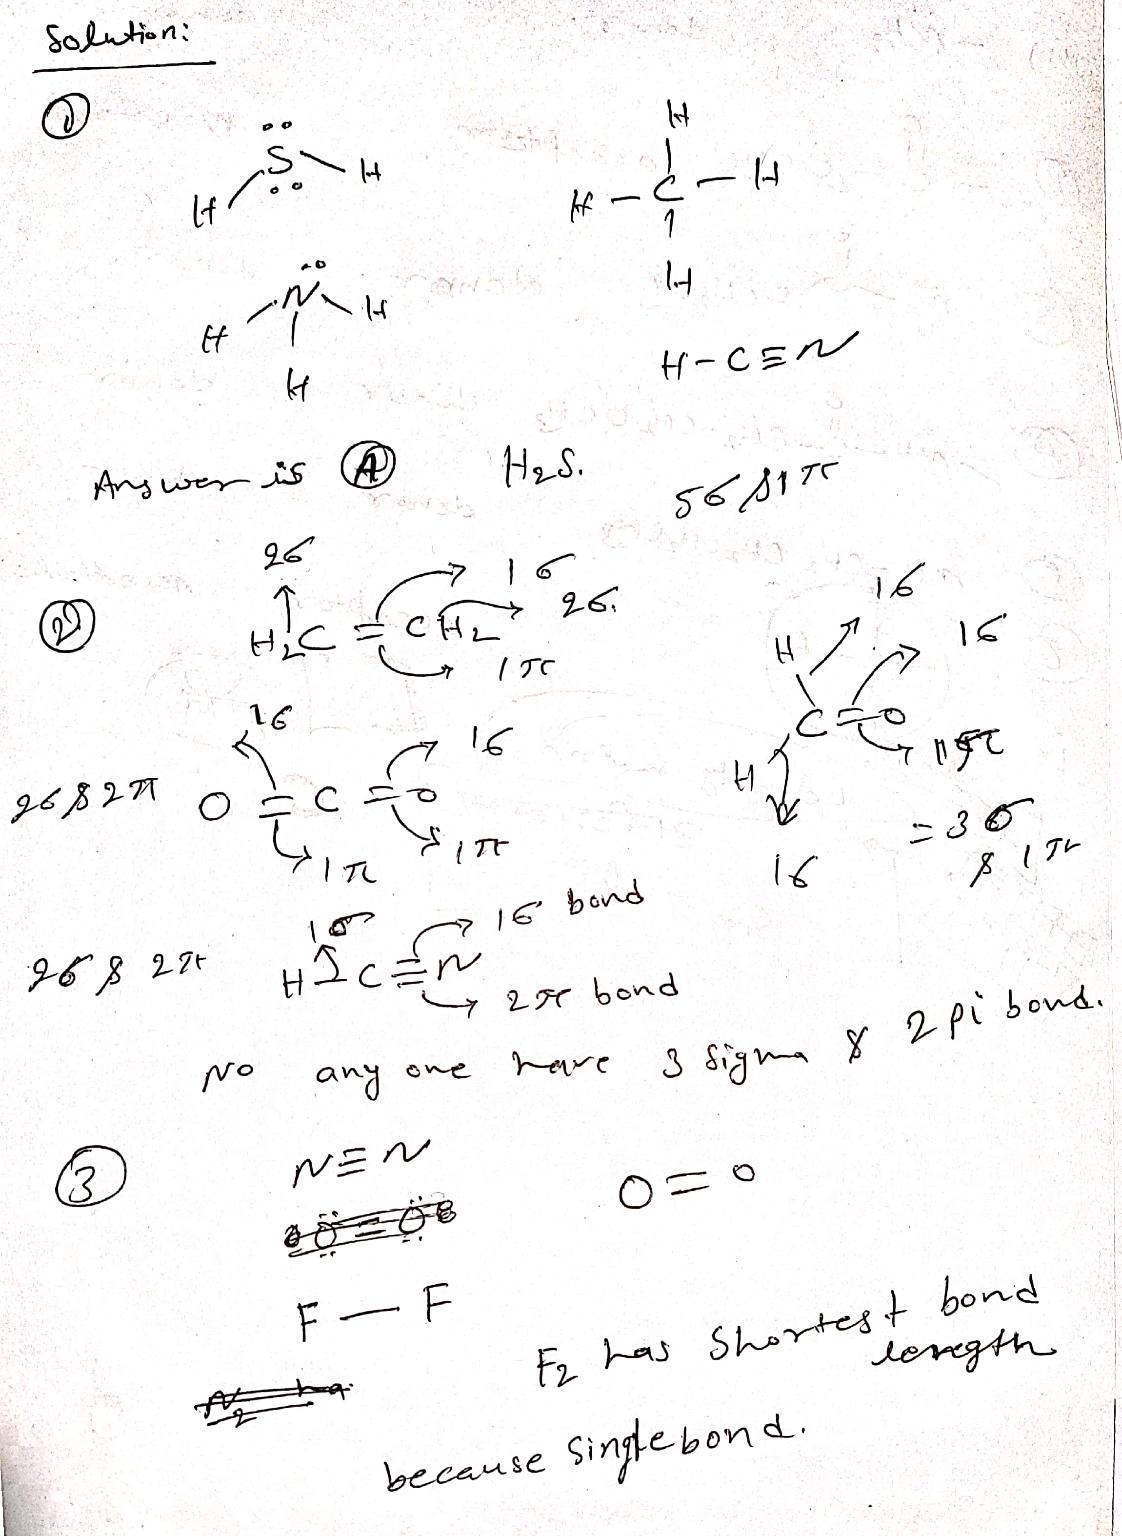 Solution:
①
S
H H
H
H - C - H
H
N
H H
H
H - C ≡ N
Answer is Ⓐ H2S.
5σ & 1π
②
2σ 1σ
2σ.
H2C = CH2
1π
1σ
1σ
H
C = O
1π
H
1σ
= 3σ
& 1π
1σ 1σ
2σ & 2π O = C = O
1π 1π
1σ 1σ bond
2σ & 2π H C ≡ N
2π bond
No any one have 3 sigma & 2 pi bond.
③
N ≡ N
O = O
F — F
F2 has shortest bond
length
because single bond.